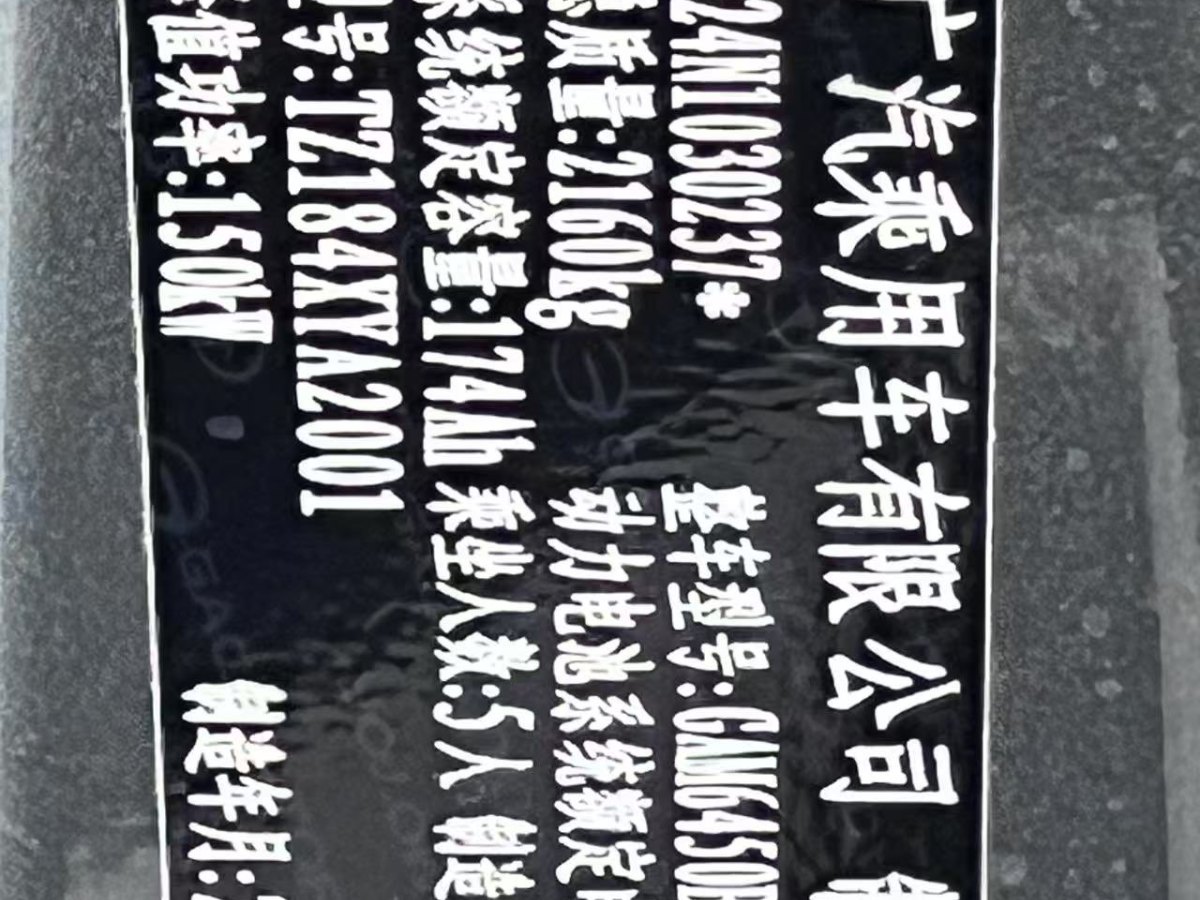 广汽乘用车有限公司
24N103023​7* 整车型号:GAM6450
质量:2160kg 动力电池系统额定
系统额定容量:174Ah 乘坐人数:5人 制造
号:TZ184XYA2001
值功率:150kW 制造年月: